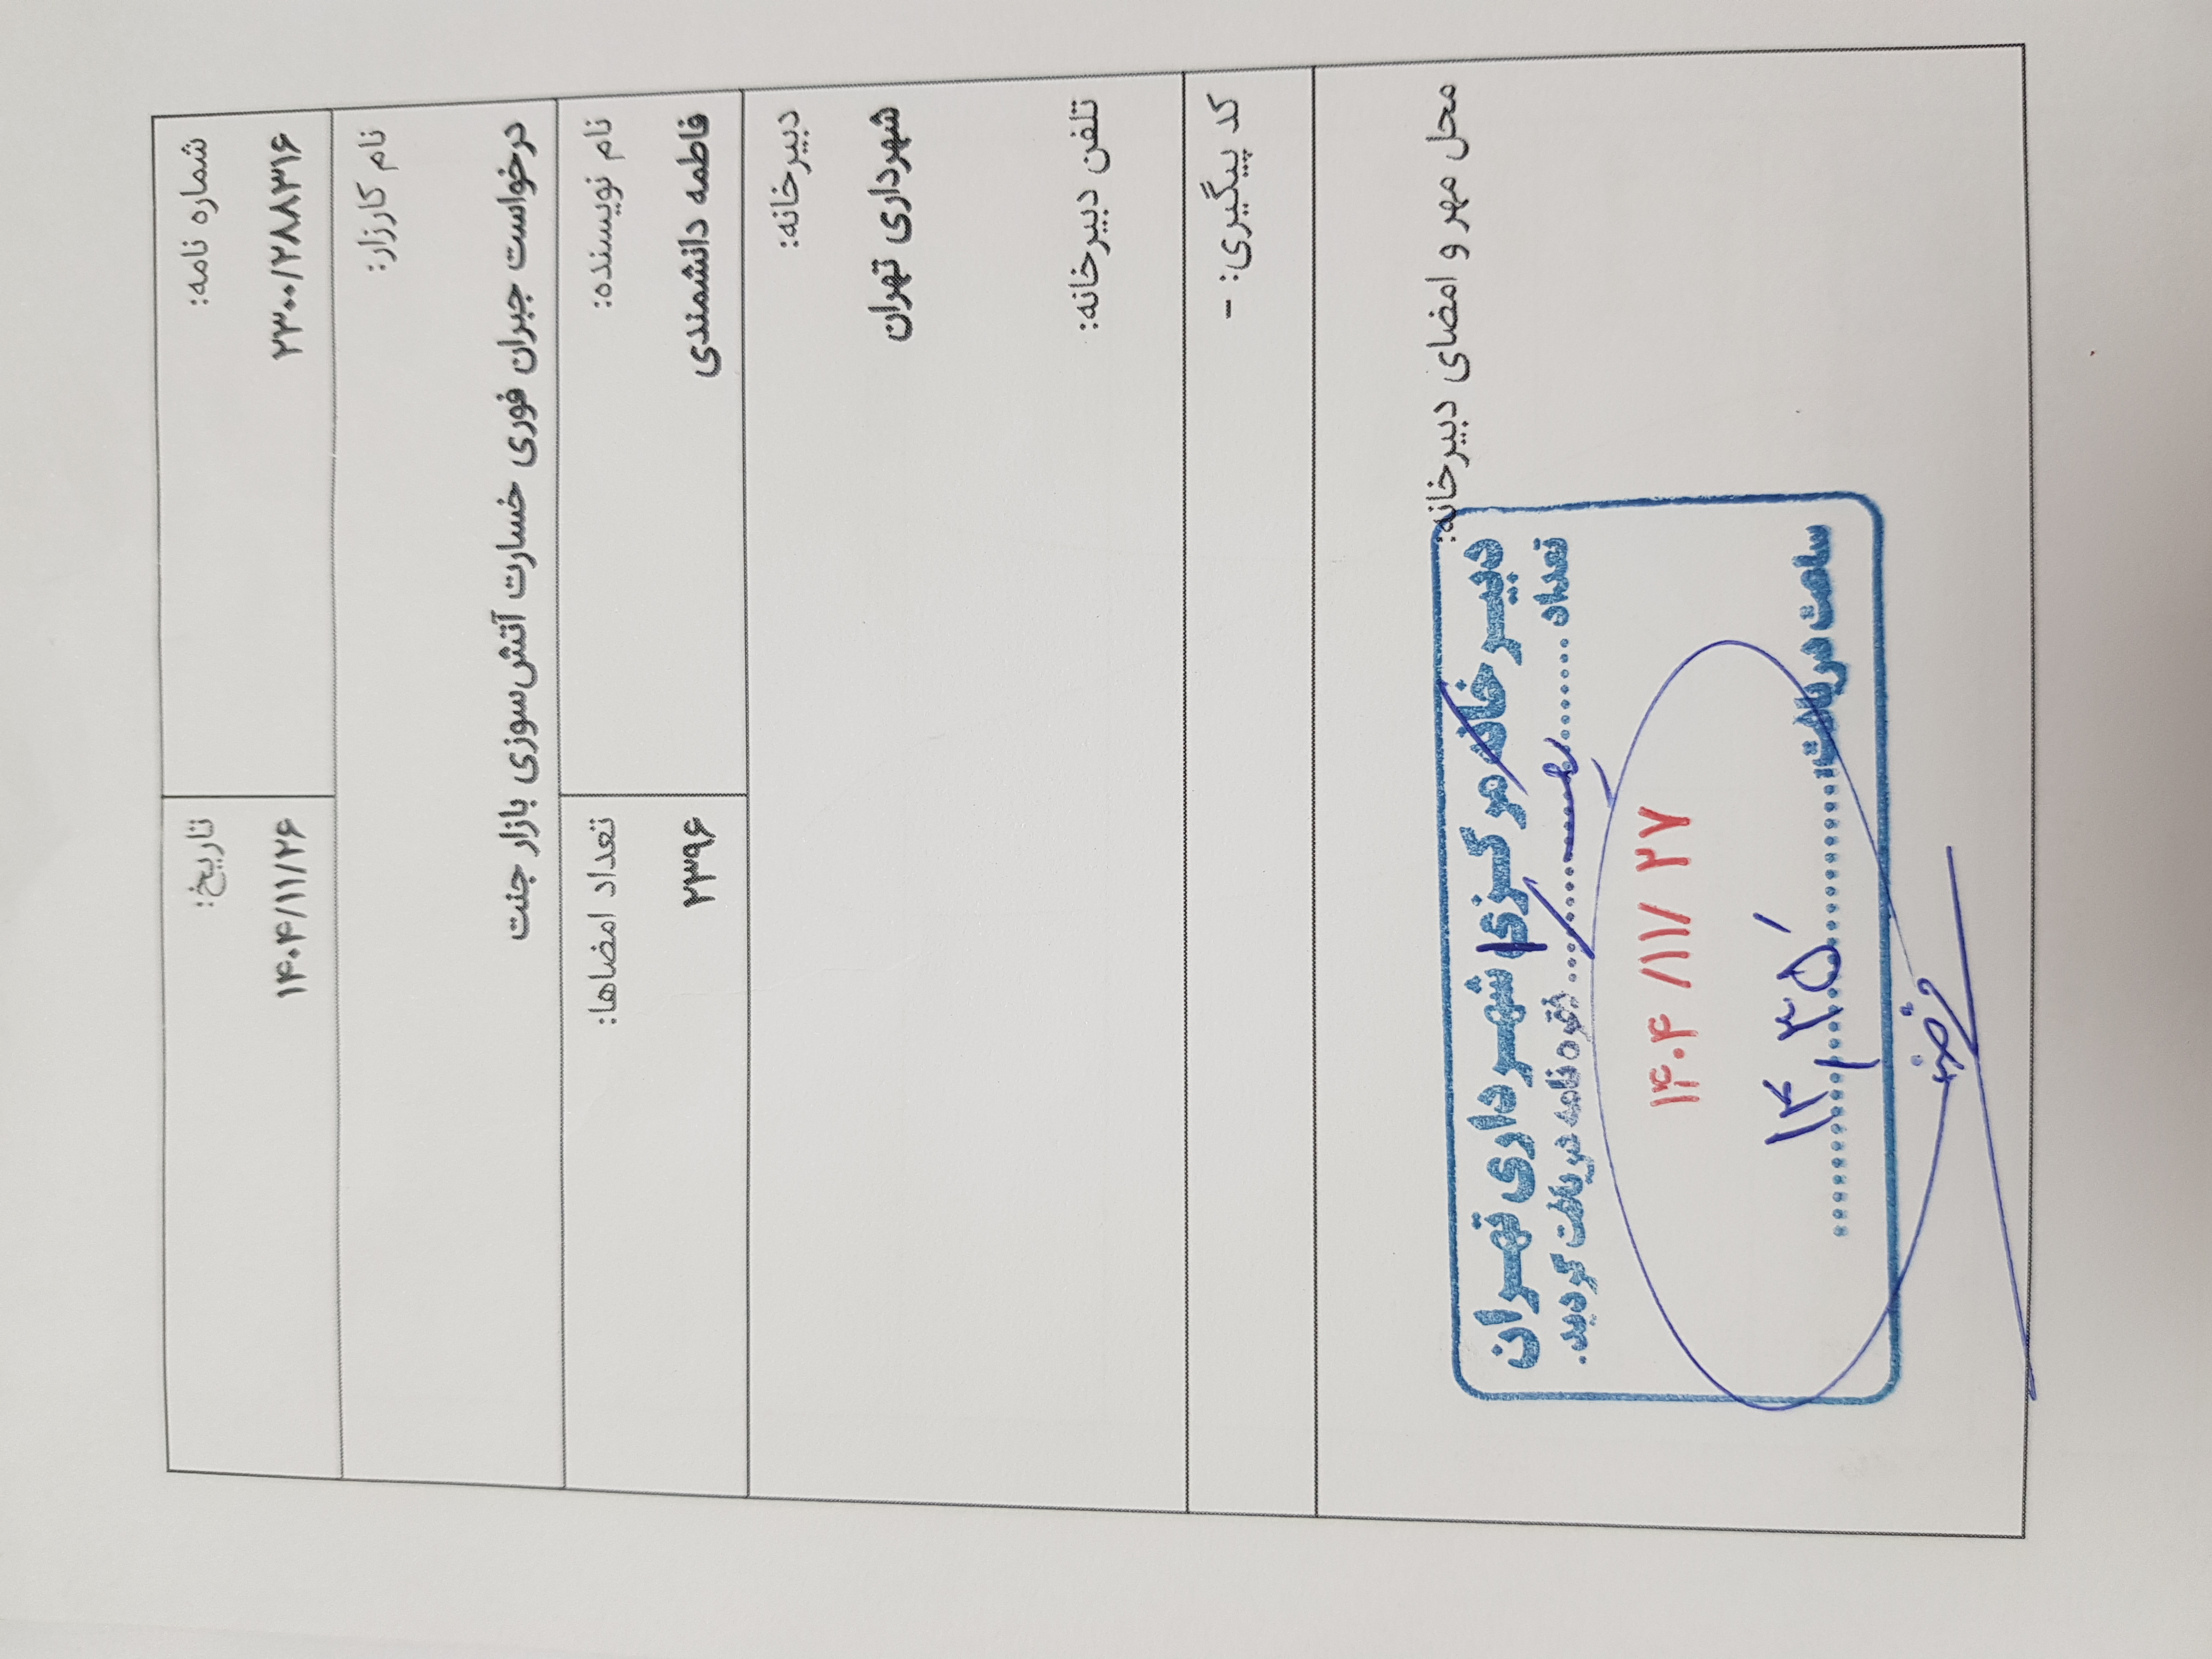 شماره نامه:
۲۳۰۰/۲۸۸۳۱۶
تاریخ:
۱۴۰۴/۱۱/۲۶
نام کارزار:
درخواست جبران فوری خسارت آتش‌سوزی بازار جنت
نام نویسنده:
فاطمه دانشمندی
تعداد امضاها:
۲۳۹۶
دبیرخانه:
شهرداری تهران
تلفن دبیرخانه:
کد پیگیری: -
محل مهر و امضای دبیرخانه:
دبیرخانه مرکزی شهرداری تهران
تعداد ........ فقره نامه دریافت گردید.
۱۴۰۴ /۱۱/ ۲۷
ساعت دریافت: ۱۴,۳۵